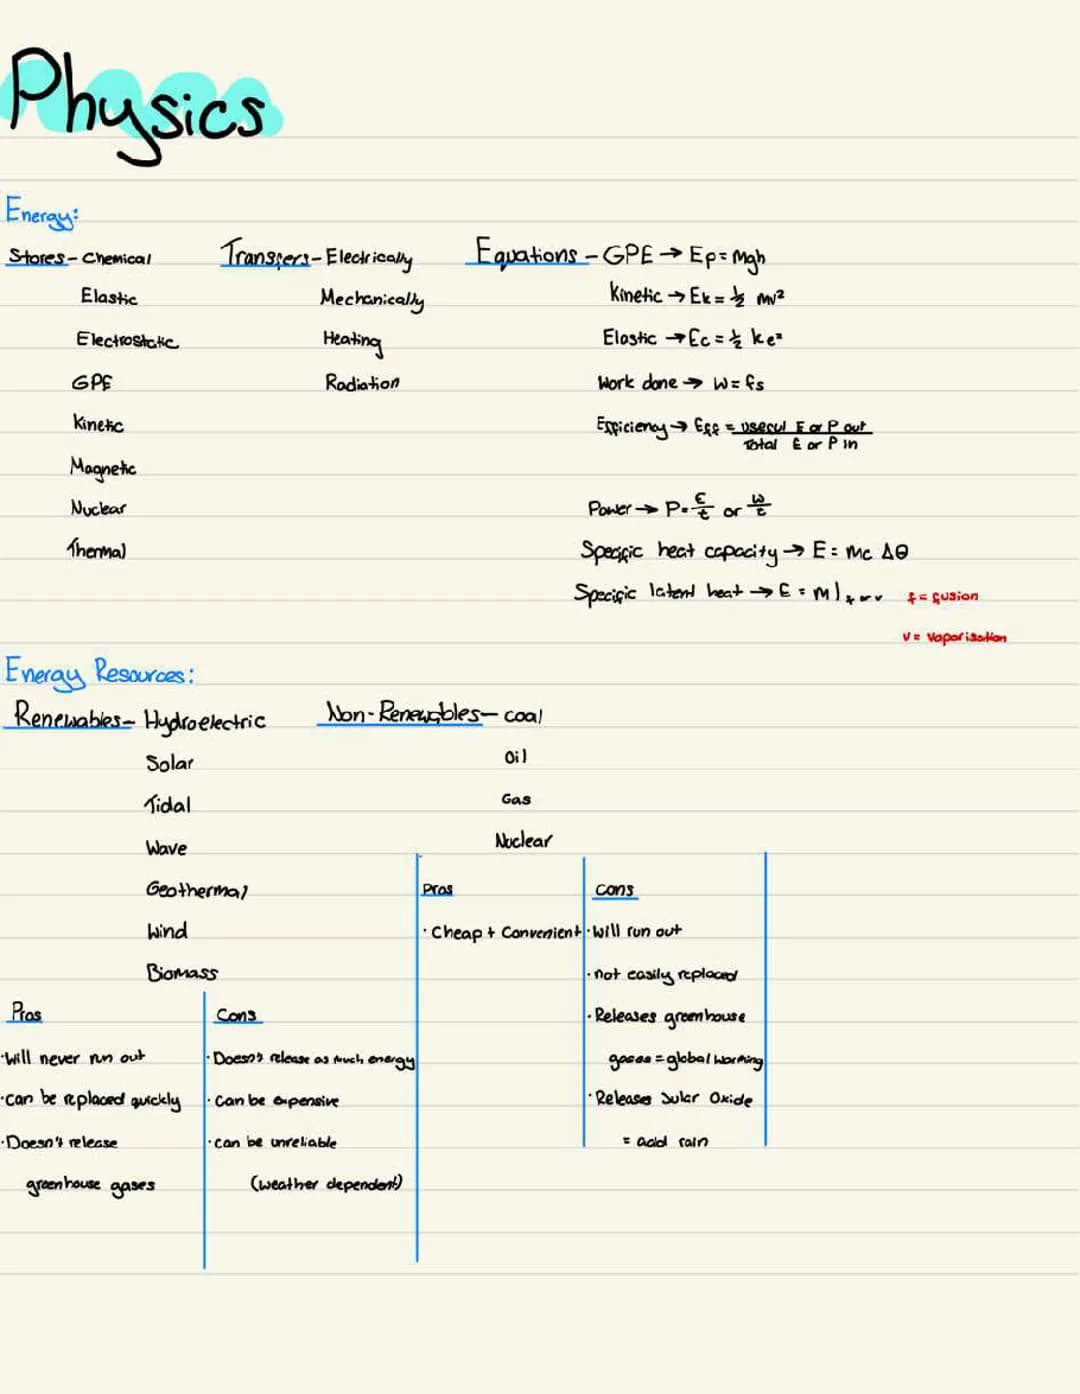 Physics
Energy:
Stores - Chemical
Elastic
Electrostatic
GPE
Kinetic
Magnetic
Nuclear
Thermal
Transfers - Electrically
Mechanically
Heating
Radiation
Equations - GPE → Ep = mgh
Kinetic → Ek = ½ mv²
Elastic → Ee = ½ ke²
Work done → W = fs
Efficiency → Eff = useful E or P out
Total E or P in
Power → P = E/t or W/t
Specific heat capacity → E = mc Δθ
Specific latent heat → E = m l f or v
f = fusion
v = vaporisation
Energy Resources:
Renewables - Hydroelectric
Solar
Tidal
Wave
Geothermal
Wind
Biomass
Pros
· Will never run out
· can be replaced quickly
· Doesn't release
greenhouse gases
Cons
· Doesn't release as much energy
· can be expensive
· can be unreliable
(weather dependent)
Non-Renewables - coal
Oil
Gas
Nuclear
Pros
· Cheap + Convenient
Cons
· Will run out
· not easily replaced
· Releases greenhouse
gases = global warming
· Releases Sular Oxide
= acid rain